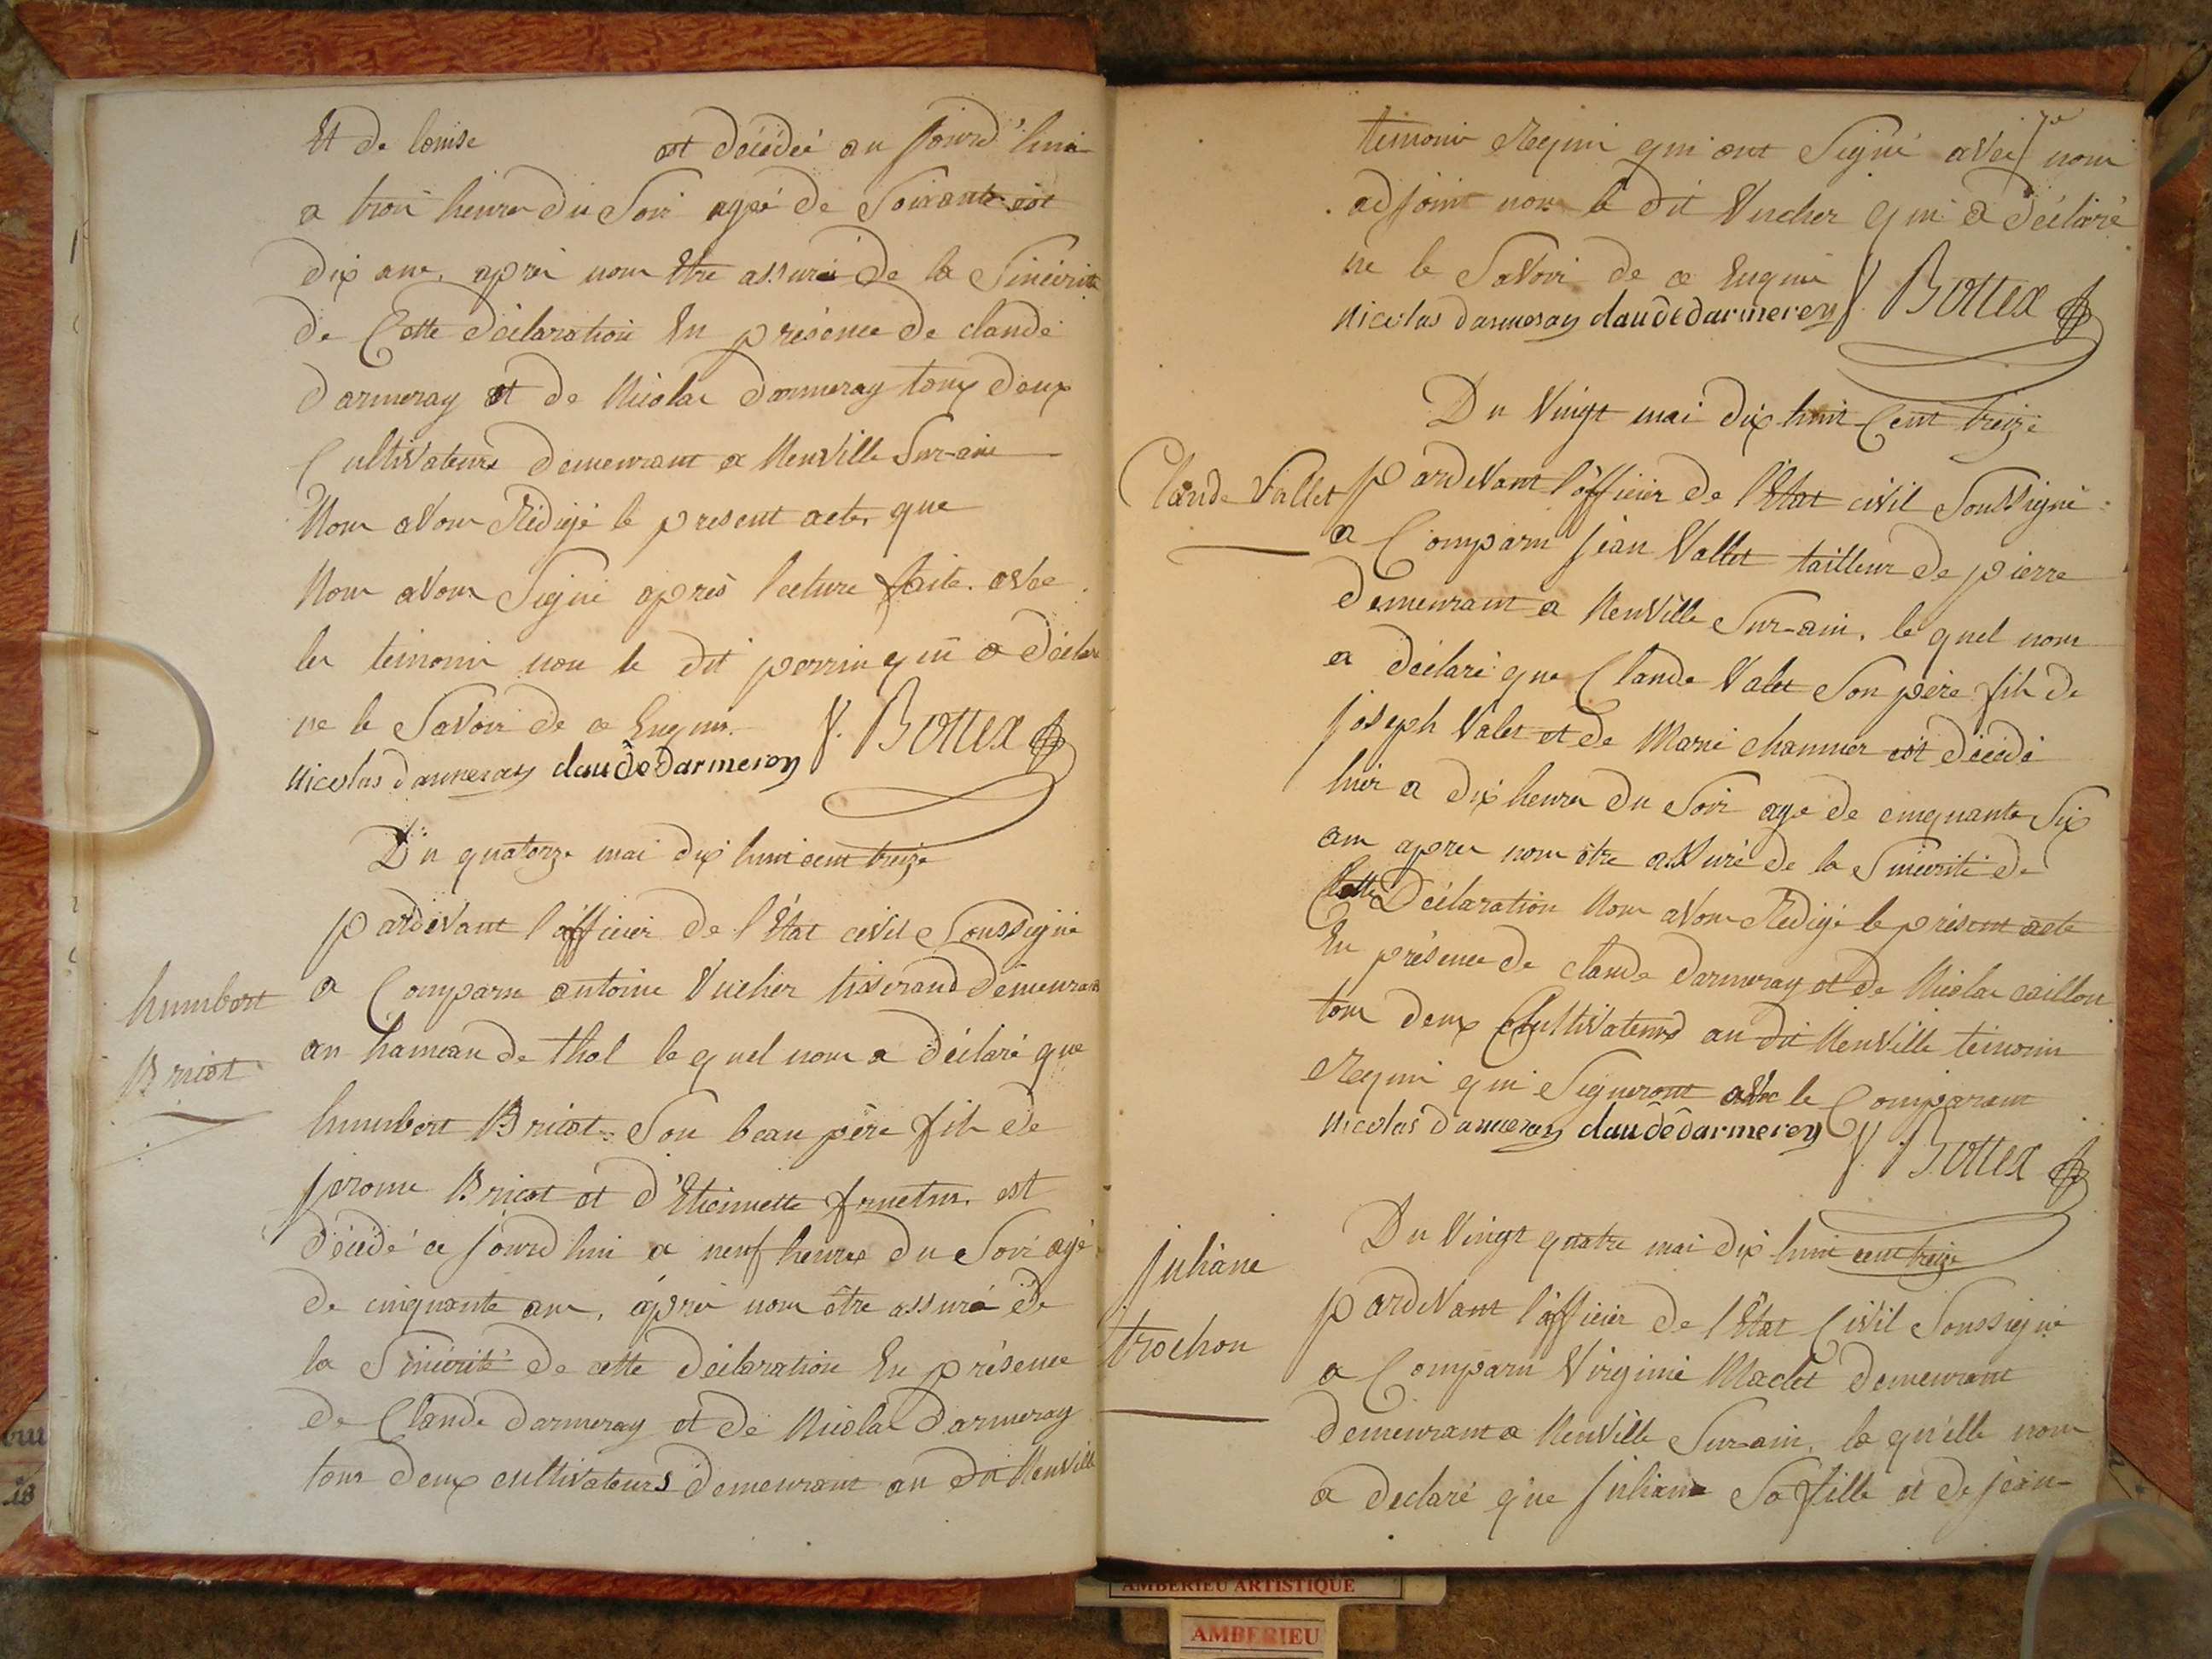 Et de louise est décédée au Jourd'hui
a trois heures du Soir agée de Soixante
dix ans. après nous Etre assuré de la Sincérité
de Cette déclaration En présence de claude
darmeray et de Nicolas darmeray tous deux
Cultivateurs demeurant a Neuville Sur-ain
Nous avons Rédigé le present acte que
Nous avons Signé après lecture faite. avec
les témoins non le dit perrin qui a déclaré
ne le Savoir de ce Enquis.
nicolas darmeray claude darmerey J. Bottex
Du quatorze mai dix huit cent treize
pardevant l'officier de l'Etat civil Soussigné
humbert
Bricot
a Comparu antoine Vucher tisserand demeurant
au hameau de thol le quel nous a déclaré que
humbert Bricot Son beau père fils de
Jerome Bricot et d'Etiennette fructus est
décédé ce jourd hui a neuf heures du Soir agé
de cinquante ans, après nous être assuré de
la Sincérité de cette déclaration En présence
de Claude darmeray et de Nicolas darmeray
tous deux cultivateurs demeurant au dit Neuville
témoins Requis qui ont Signé avec nous
adjoint non le dit Vucher qui a déclaré
ne le Savoir de ce Enquis
nicolas darmeray claude darmerey J. Bottex
Du Vingt mai dix huit Cent treize
Claude Vallet
pardevant l'officier de l'Etat civil Soussigné
a Comparu Jean Vallet tailleur de pierre
demeurant a Neuville Sur-ain, le quel nous
a déclaré que Claude Valet Son père fils de
joseph Valet et de Marie chanuier est décédé
hier a dix heures du Soir age de cinquante Six
ans apres nous être assuré de la Sincérité de
Cette Déclaration Nous avons Rédigé le présent acte
En présence de claude darmeray et de Nicolas caillou
tous deux Cultivateurs au dit Neuville témoins
Requis qui Signeront avec le Comparant
nicolas darmeray claude darmerey J. Bottex
Du Vingt quatre mai dix huit cent treize
juliane
trochon
pardevant l'officier de l'Etat Civil Soussigné
a Comparu Virginie Maclet demeurant
demeurant a Neuville Sur-ain, la qu'elle nous
a declaré que Juliane Sa fille et de jean-
AMBERIEU ARTISTIQUE
AMBERIEU